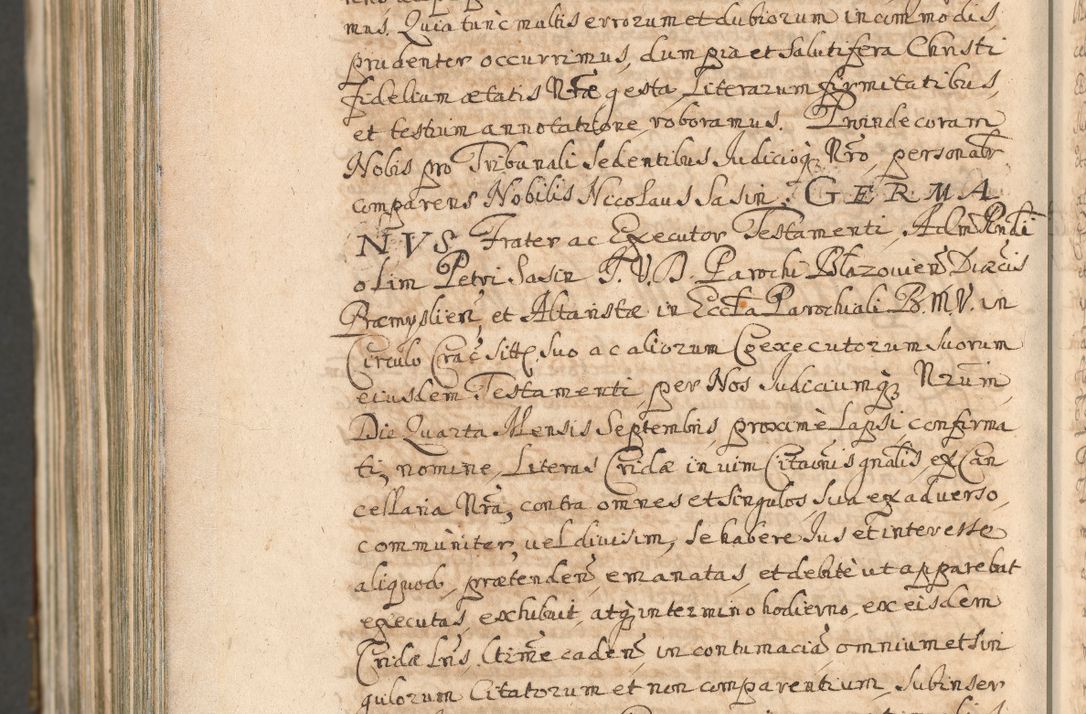 mus. Quia tunc multis errorum et dubiorum incommodis
prudenter occurrimus, dum pia et salutifera Christi
fidelium ætatis Nræ gesta, Literarum firmitatibus,
et testium annotatione roboramus. Proinde coram
Nobis pro Tribunali Sedentibus Judicioq; Nro, personalr
comparens Nobilis Nicolaus Sasin, GERMA
NVS Frater ac Executor Testamenti, Adm Rndi
olim Petri Sasin I. V. D. Parochi Błazovien Diæcis
Præmyslien et Altaristæ in Eccla Parochiali B. M. V. in
Circulo Crac sitt, suo ac aliorum Coexecutorum suorum
eiusdem Testamenti per Nos Judiciumq; Nrum
Die Quarta Mensis Septembris proxime Lapsi, confirma
ti, nomine, Literas Cridæ in vim Citaonis gnalis, ex Can
cellaria Nra, contra omnes et singulos sua ex adverso,
communiter, vel divisim, se habere Jus et interesse
aliquod, prætenden, emanatas, et debitè ut apparebat
executas, exhibuit, atq; in termino hodierno, ex eisdem
Cridæ Lris, Ltime caden, in contumaciã omnium et sin
gulorum Citatorum et non comparentium, subinser